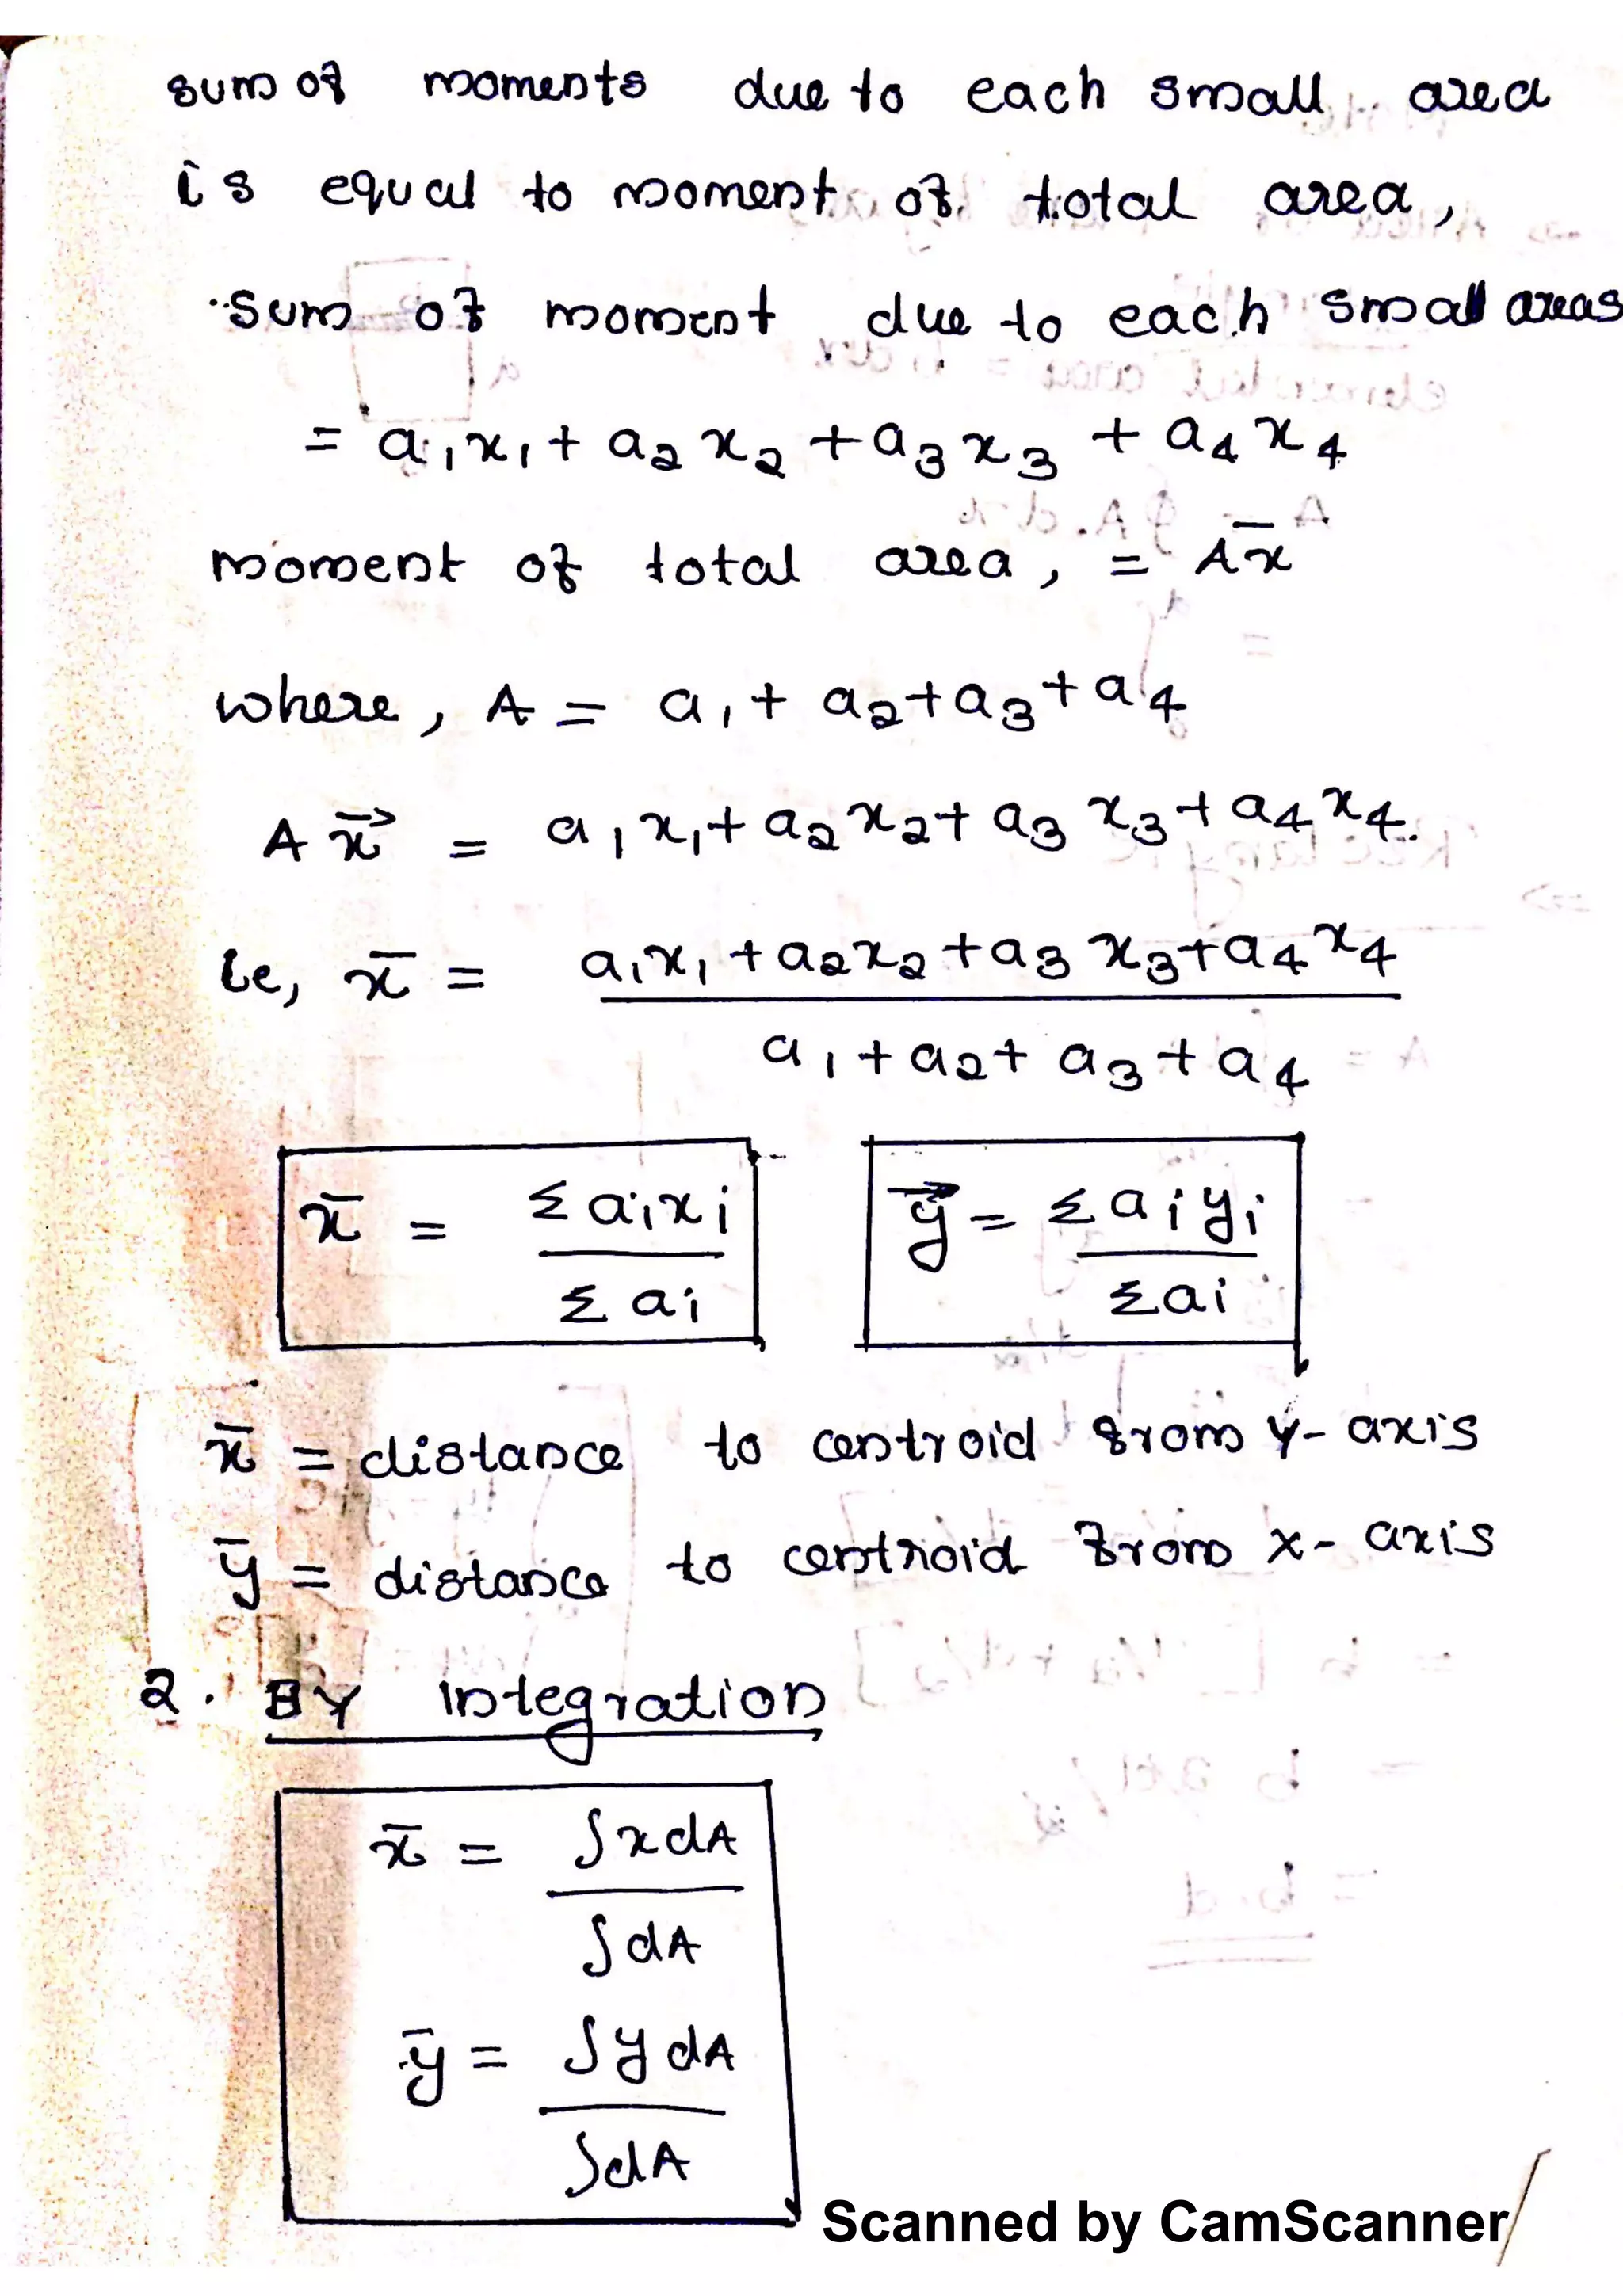 sum of moments due to each small area
is equal to moment of total area,
sum of moment due to each small areas
= a₁x₁ + a₂x₂ + a₃x₃ + a₄x₄
moment of total area, = Ax̄
where, A = a₁ + a₂ + a₃ + a₄
A x̄ = a₁x₁ + a₂x₂ + a₃x₃ + a₄x₄.
ie, x̄ = a₁x₁ + a₂x₂ + a₃x₃ + a₄x₄
a₁ + a₂ + a₃ + a₄
x̄ = Σaᵢxᵢ ȳ = Σaᵢyᵢ
Σaᵢ Σaᵢ
x̄ = distance to centroid from y-axis
ȳ = distance to centroid from x-axis
2. BY integration
x̄ = ∫xdA
∫dA
ȳ = ∫ydA
∫dA
Scanned by CamScanner